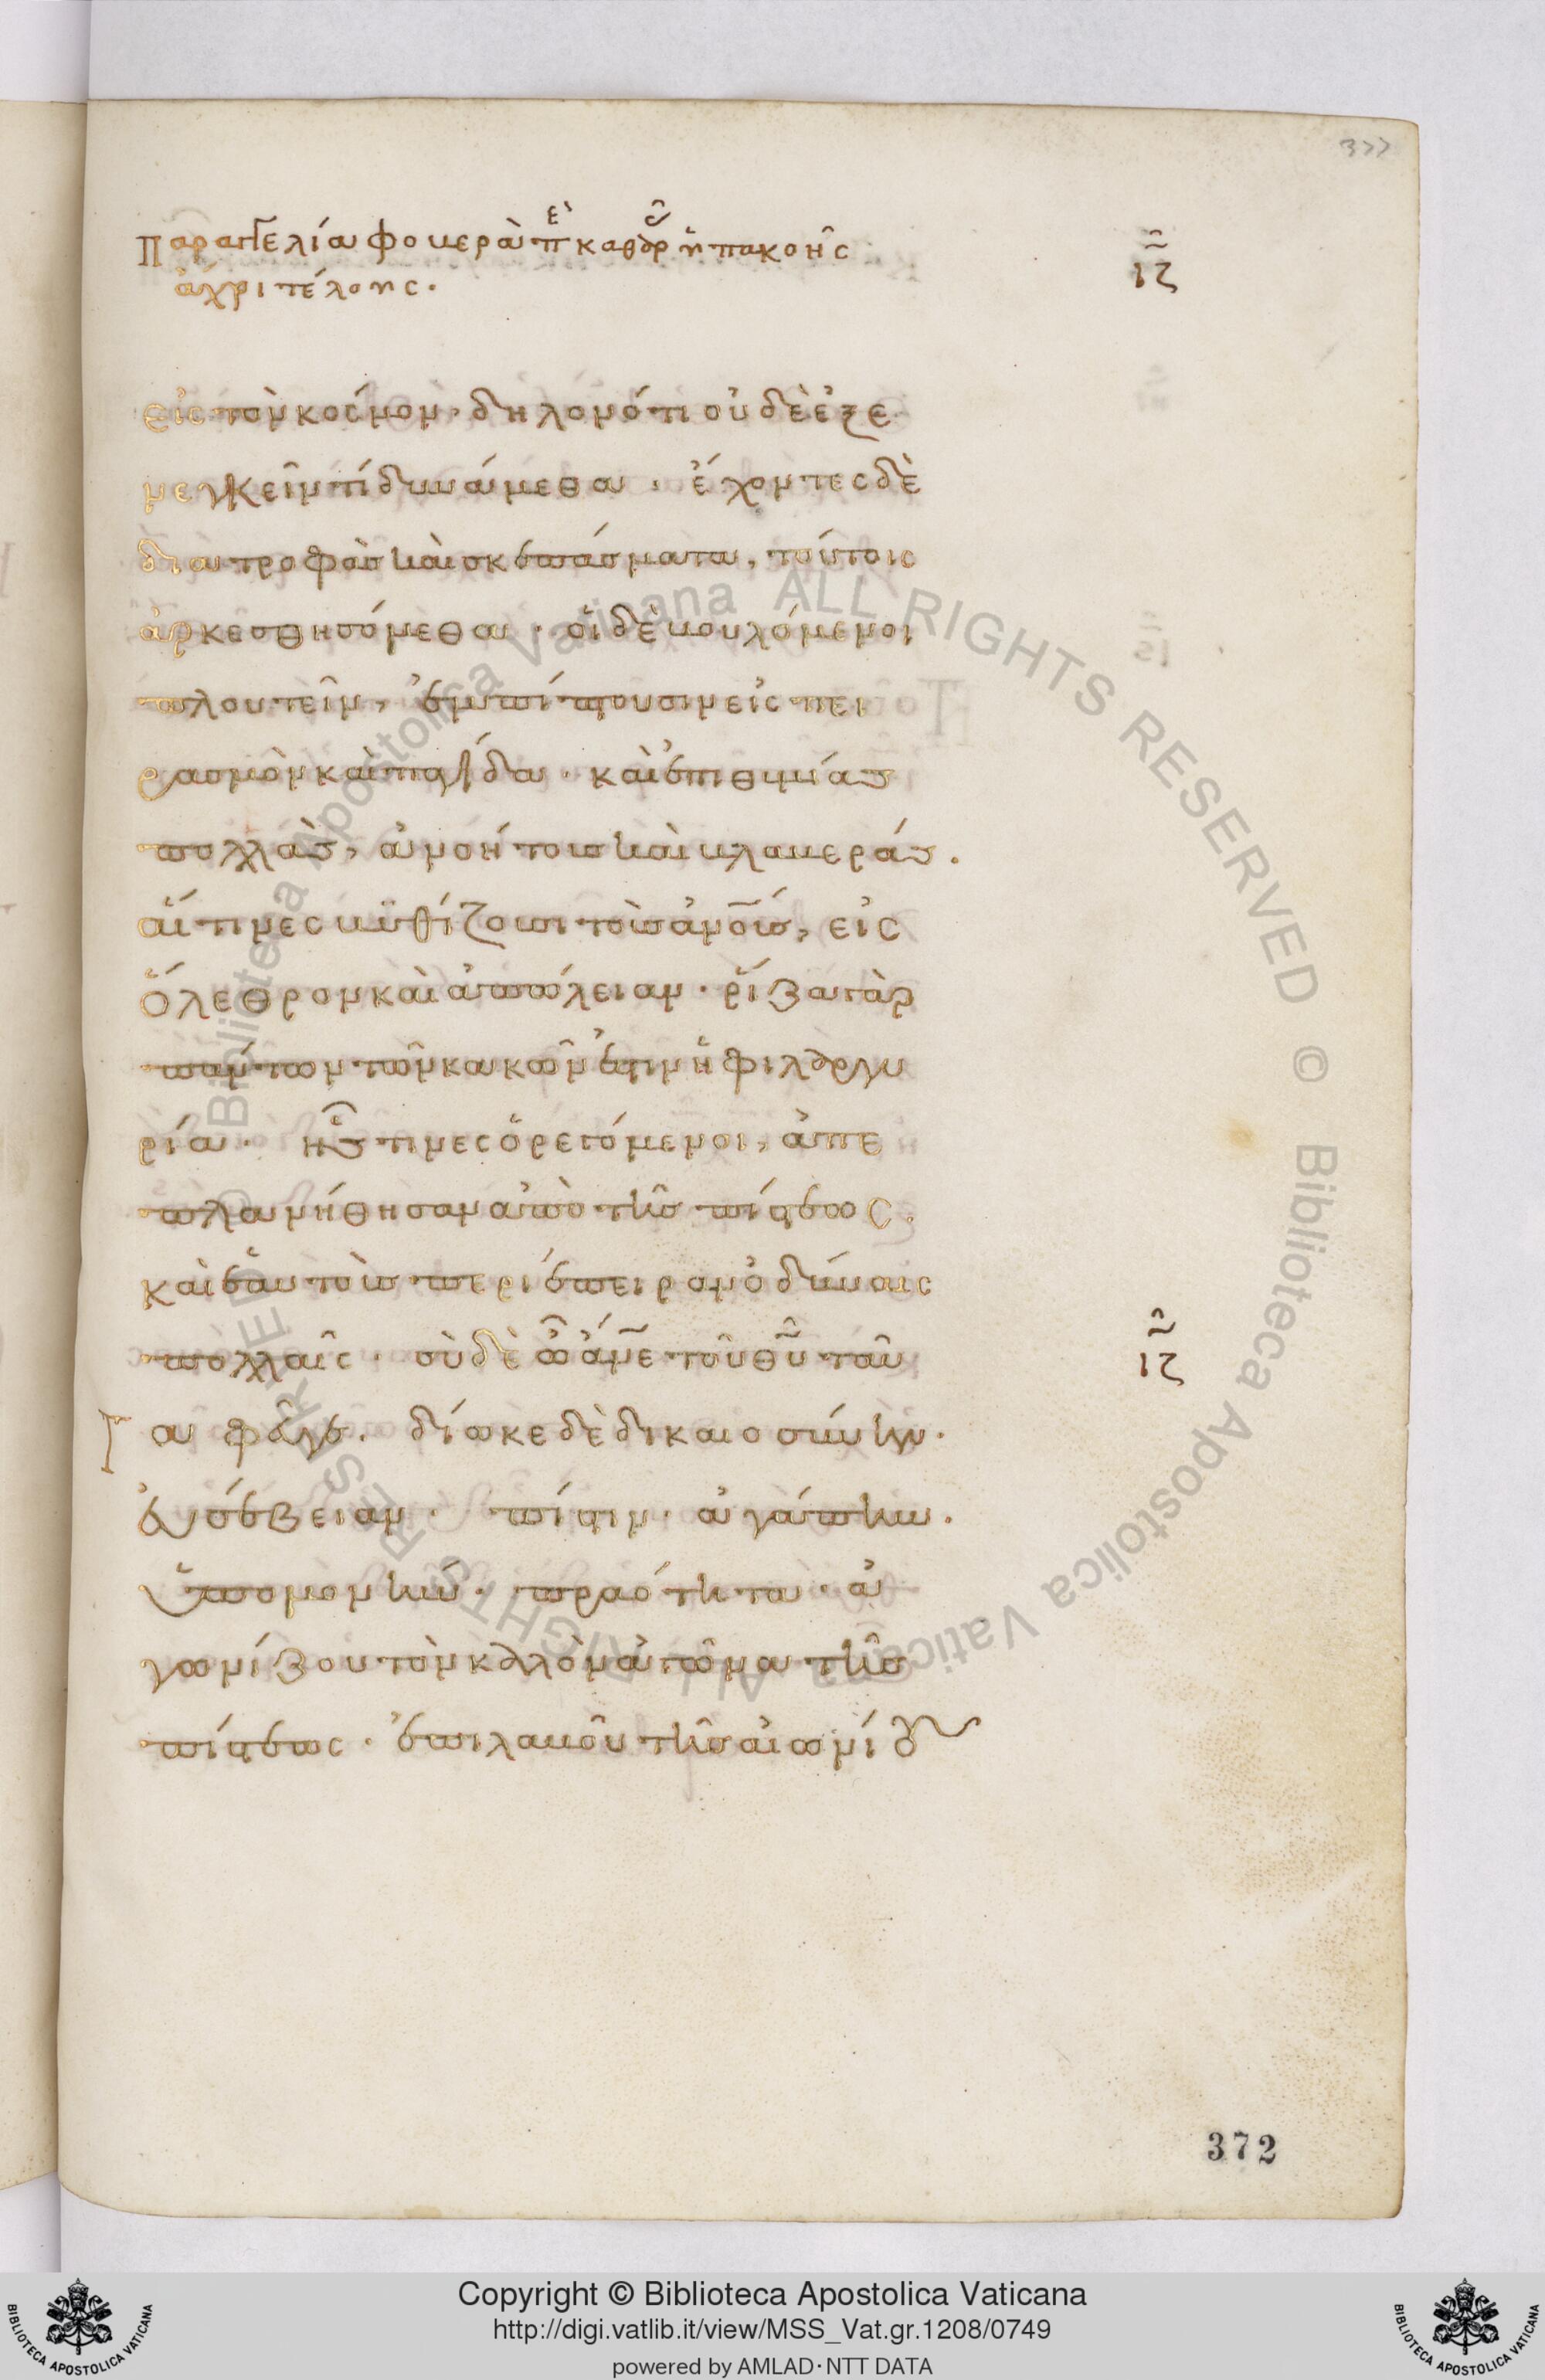 377
Παραγγελία φοβερὰ πε καθαρ ὑπακοῆς
ἄχρι τέλους.
ιζ
εἰς τὸν κόσμον· δῆλον ὅτι οὐδὲ ἐξε
νεγκεῖν τί δυνάμεθα· ἔχοντες δὲ
διατροφὰς καὶ σκεπάσματα, τούτοις
ἀρκεσθησόμεθα· οἱ δὲ βουλόμενοι
πλουτεῖν, ἐμπίπτουσιν εἰς πει
ρασμὸν καὶ παγίδα· καὶ ἐπιθυμίας
πολλὰς, ἀνοήτους καὶ βλαβεράς.
αἵτινες βυθίζουσι τοὺς ἀνους, εἰς
ὄλεθρον καὶ ἀπώλειαν· ῥίζα γὰρ
πάντων τῶν κακῶν ἐστιν ἡ φιλαργυ
ρία· ἧς τινες ὀρεγόμενοι, ἀπε
πλανήθησαν ἀπὸ τῆς πίστεως.
καὶ ἑαυτοὺς περιέπειραν ὀδύναις
πολλαῖς· σὺ δὲ ὦ ἄνε τοῦ θυ ταῦ
ιζ
τα φεῦγε· δίωκε δὲ δικαιοσύνην·
εὐσέβειαν· πίστιν· ἀγάπην·
ὑπομονὴν· πραότητα· ἀ
γωνίζου τὸν καλὸν ἀγῶνα τῆς
πίστεως· ἐπιλαβοῦ τῆς αἰωνίου
372
Biblioteca Apostolica Vaticana ALL RIGHTS RESERVED © Biblioteca Apostolica Vaticana ALL RIGHTS RESERVED ©
Copyright © Biblioteca Apostolica Vaticana
http://digi.vatlib.it/view/MSS_Vat.gr.1208/0749
powered by AMLAD·NTT DATA
BIBLIOTECA APOSTOLICA VATICANA
BIBLIOTECA APOSTOLICA VATICANA